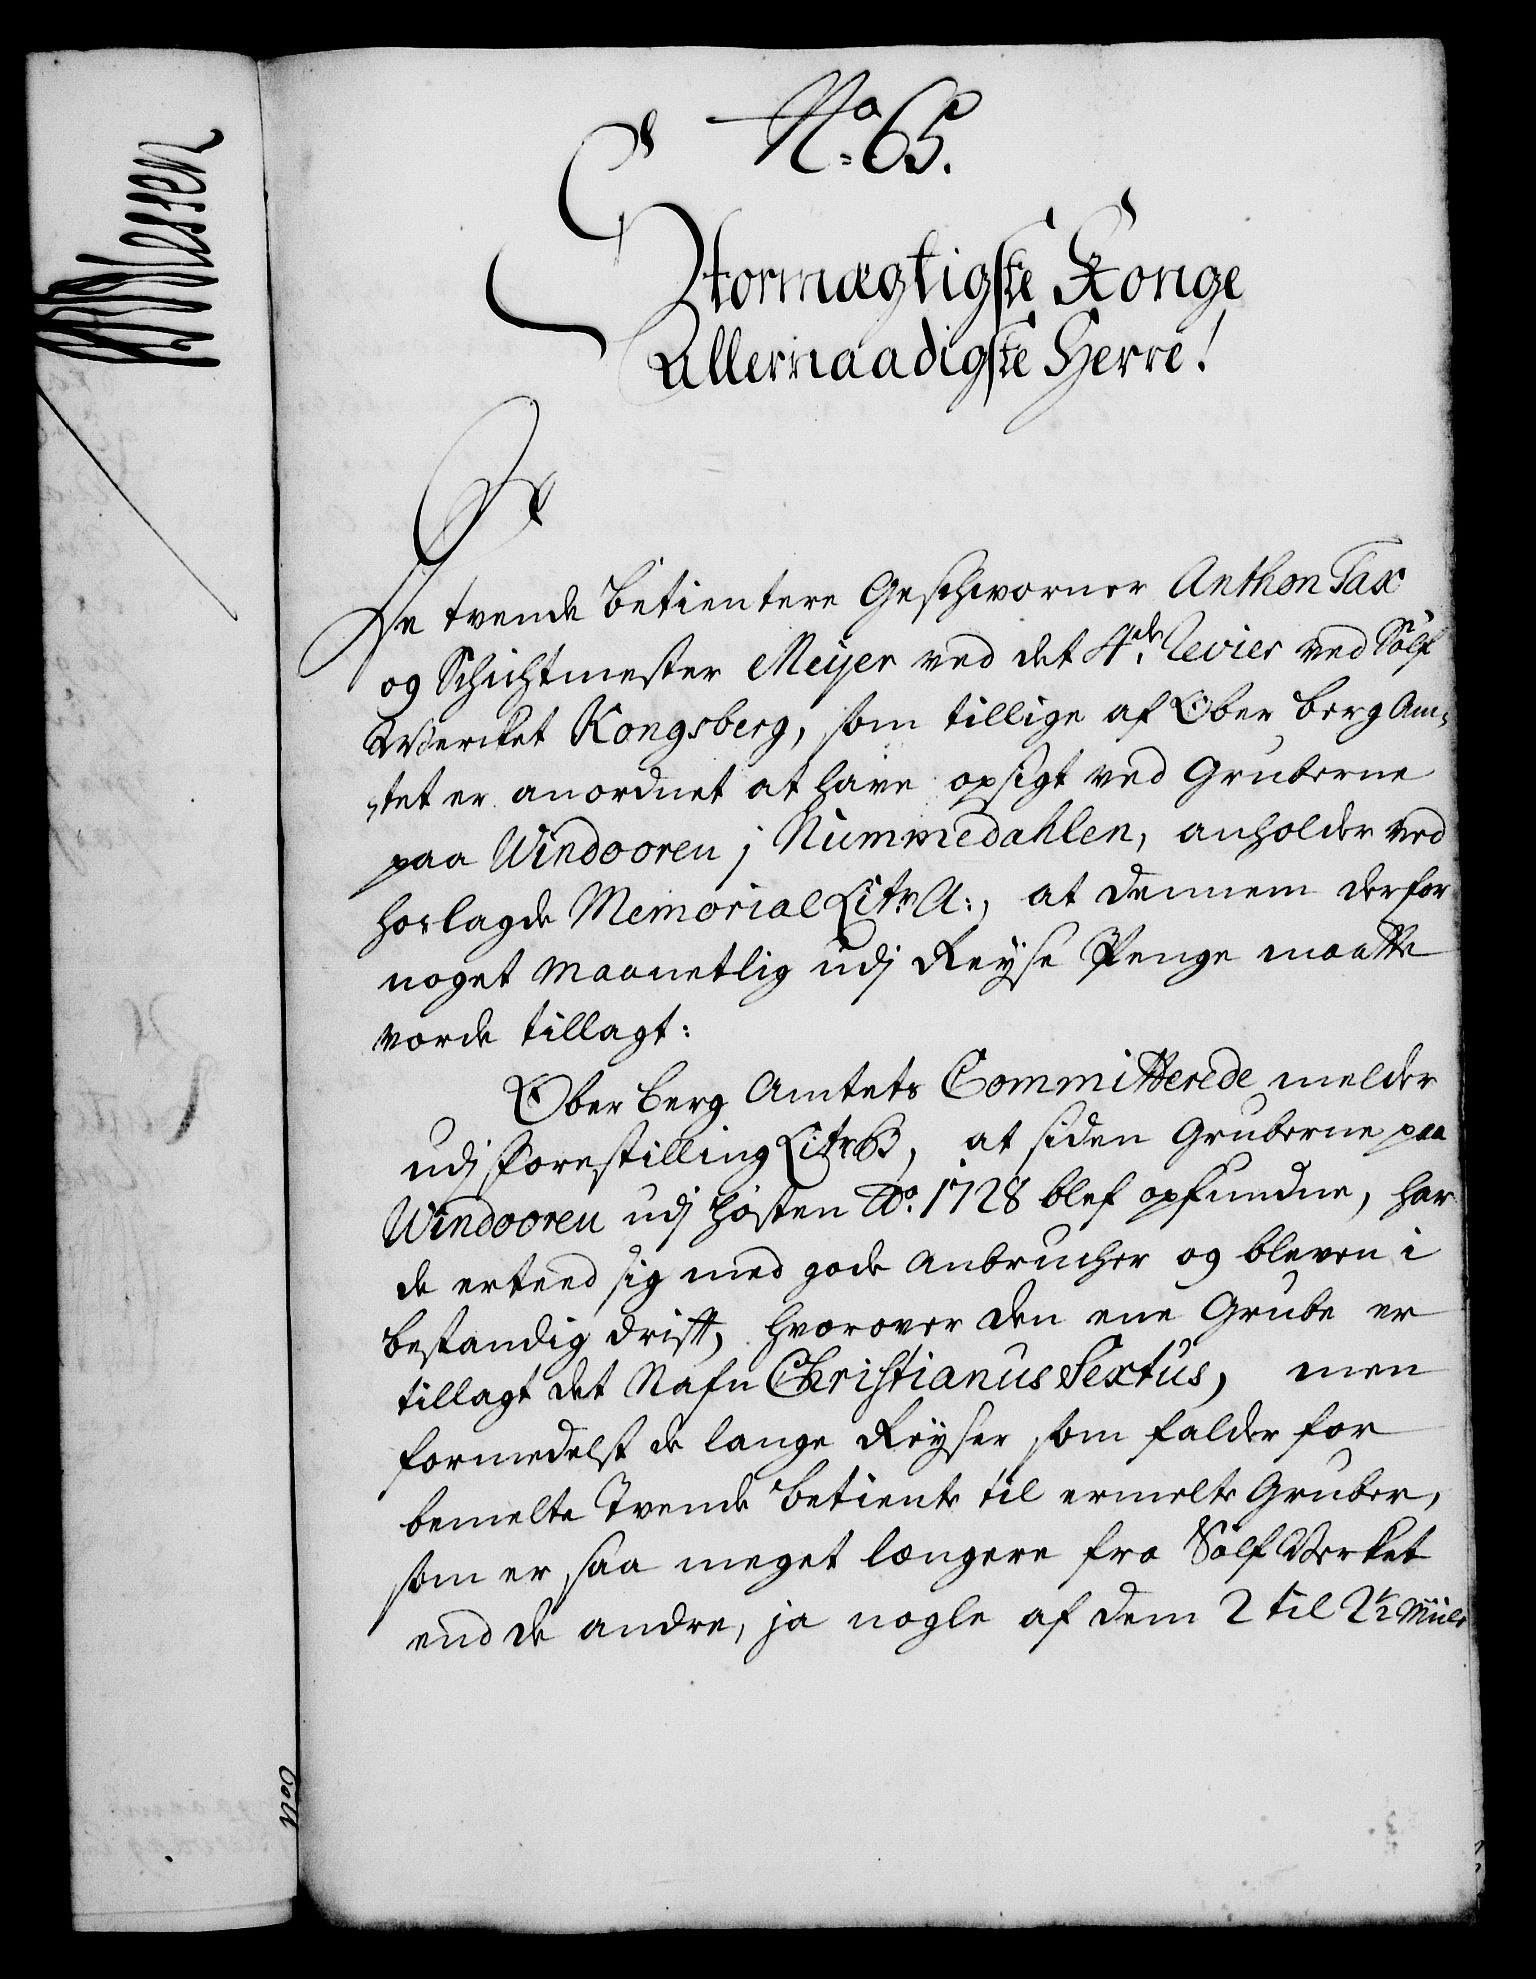 No. 65.
Stormægtigste Konge
Allernaadigste Herre!
De tvende Betientere Geschworner Anthon Tax
og Schichtmester Meyer ved det 4de Revier ved Sølf
Wercket Kongsberg, som tillige af Ober Berg Am-
tet er anordnet at have opsigt ved Gruberne
paa Windooren j Nummedahlen, anholder ved
hoslagde Memorial Litr. A:, at dennem derfor
noget Maanetlig udj Reyse Penge maatte
vorde tillagt:
Ober Berg Amtets Committerede melder
udj Forestilling Litr B, at siden Gruberne paa
Windooren udj Høsten Ao. 1728 blef opfundne, har
de erteed sig med gode Anbrucher og bleven i
bestandig Drift, hvorover den ene Grube er
tillagt det Nafn Christianus Sextus, men
formedelst de lange Reyser som falder for
bemelte Tvende Betiente til ermelte Gruber,
som er saa meget længere fra Sølf Verket
end de andre, ja nogle af dem 2 til 2 1/2 Miile